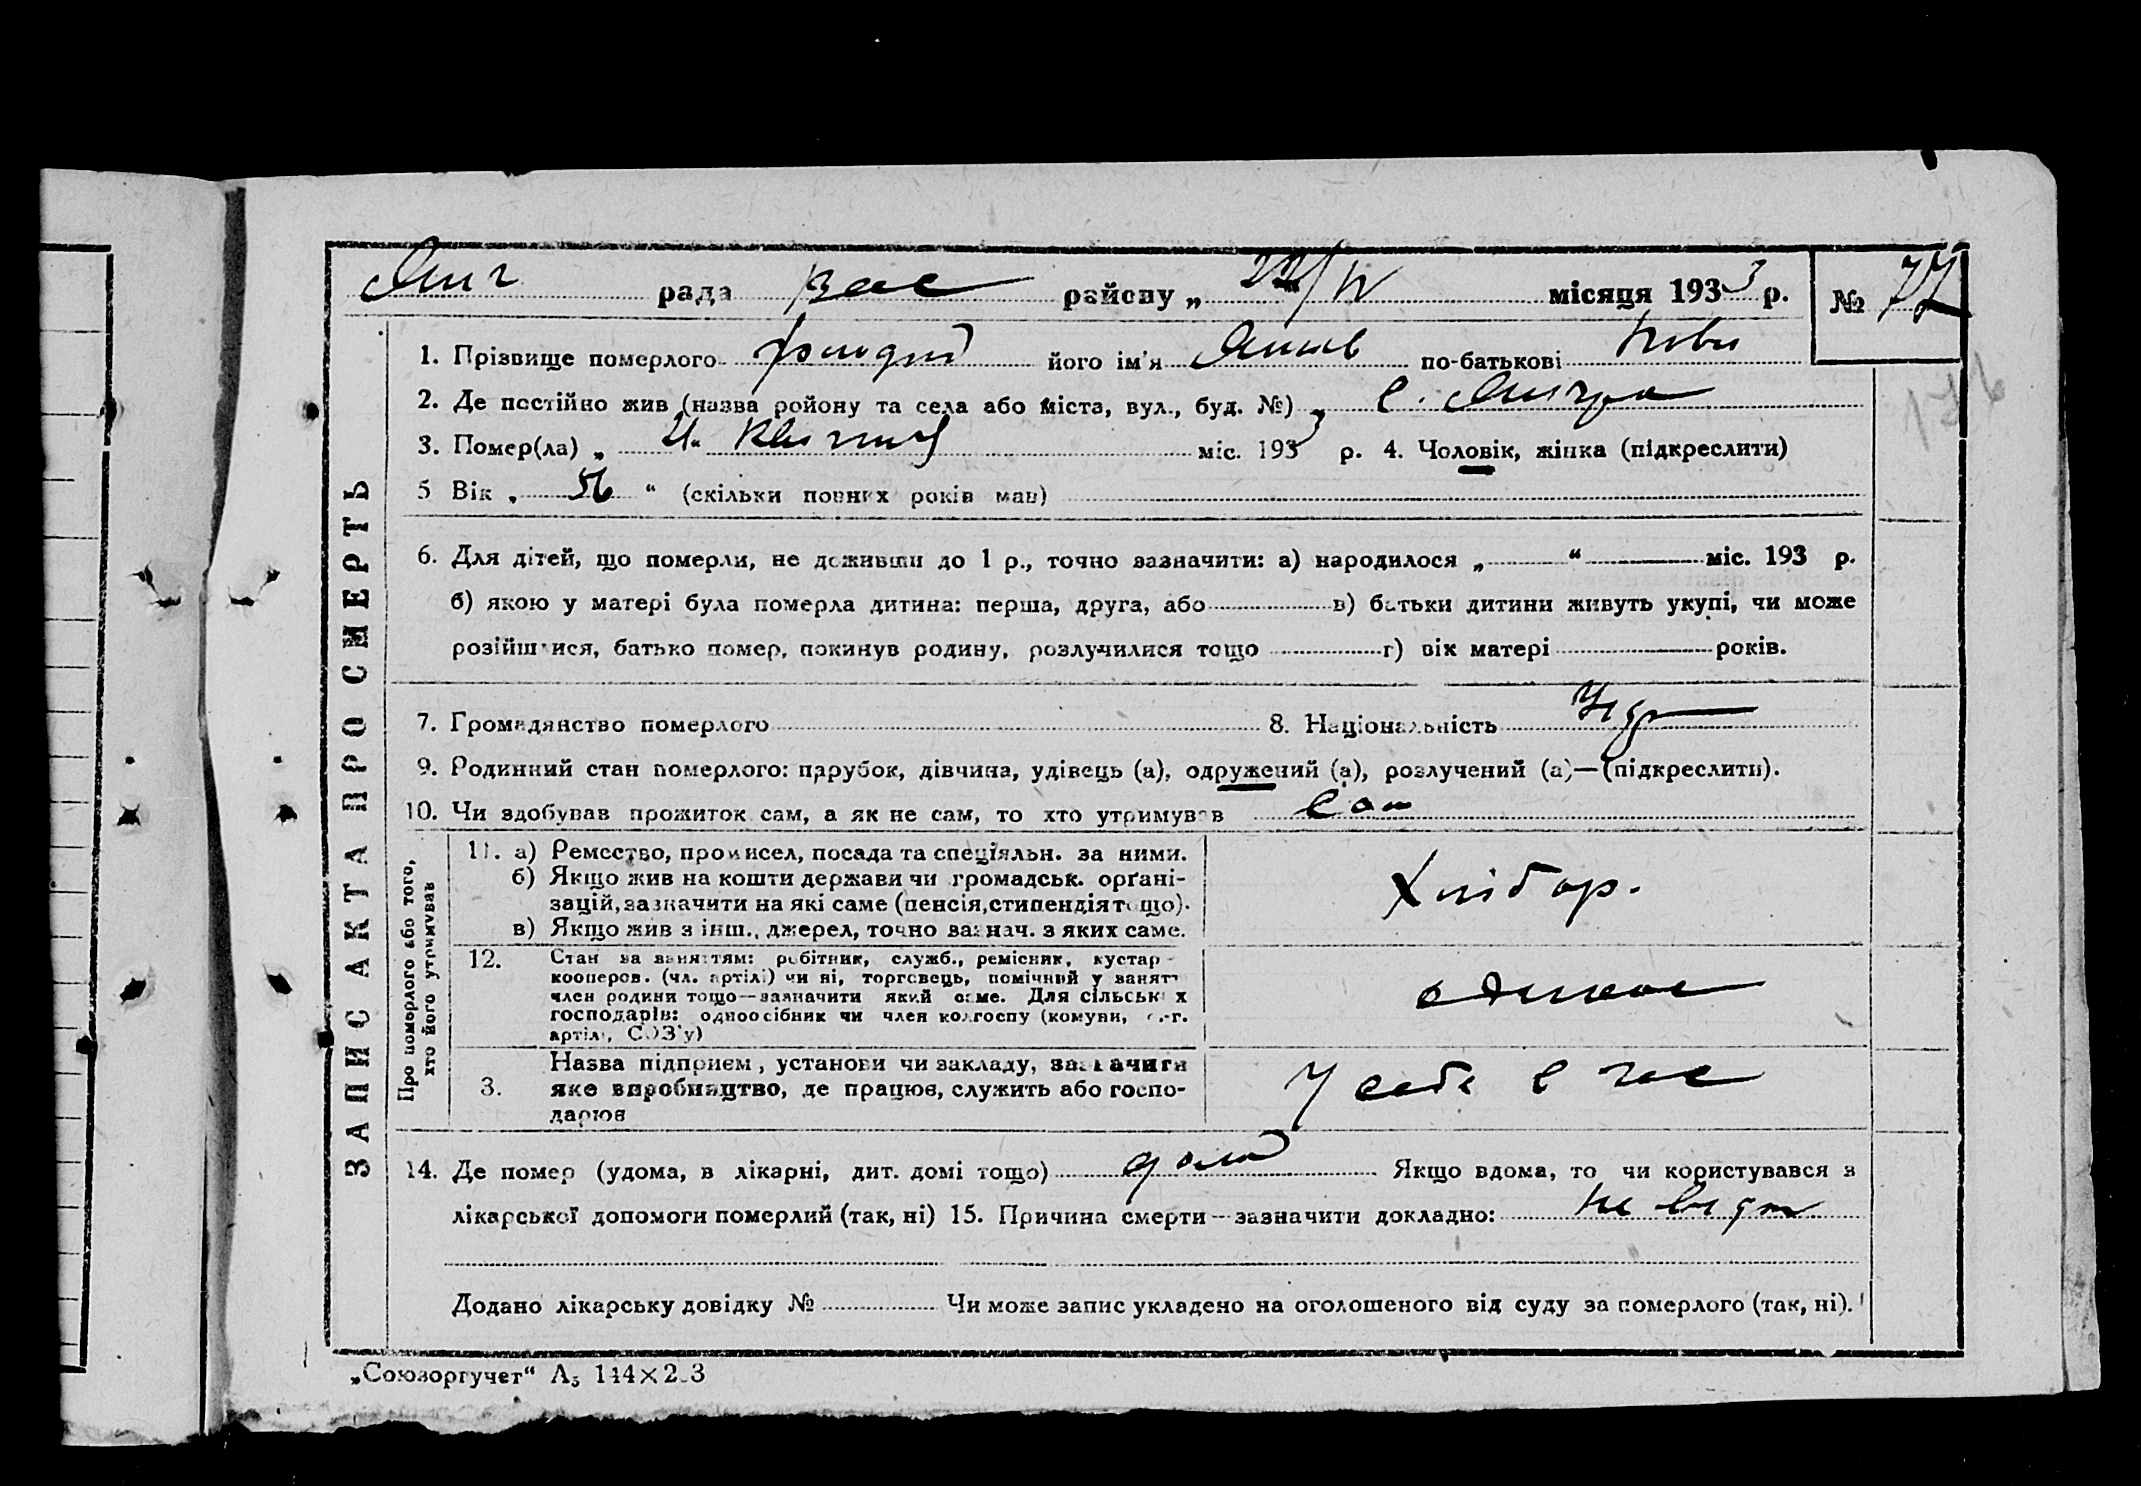 рада рас району „ 22/IV місяця 1933 р. № 77
1. Прізвище померлого його ім'я по-батькові
2. Де постійно жив (назва ройону та села або міста, вул., буд. №) с.
3. Помер(ла) „ міс. 1933 р. 4. Чоловік, жінка (підкреслити)
5 Вік „ 56 “ (скільки повних років мав)
6. Для дітей, що померли, не доживши до 1 р., точно зазначити: а) народилося „ “ міс. 193 р.
б) якою у матері була померла дитина: перша, друга, або в) батьки дитини живуть укупі, чи може
розійшлися, батько помер, покинув родину, розлучилися тощо г) вік матері років.
7. Громадянство померлого 8. Національність Укр
9. Родинний стан померлого: парубок, дівчина, удівець (а), одружений (а), розлучений (а)—(підкреслити).
10. Чи здобував прожиток сам, а як не сам, то хто утримував сам
ЗАПИС АКТА ПРО СМЕРТЬ
Про померлого або того,
хто його утримував
11. а) Ремество, промисел, посада та спеціяльн. за ними.
б) Якщо жив на кошти держави чи громадськ. орґані-
зацій, зазначити на які саме (пенсія, стипендія тощо).
в) Якщо жив з інш., джерел, точно зазнач. з яких саме.
Хлібор.
12. Стан за заняттям: робітник, служб., ремісник, кустар -
кооперов. (чл. артілі) чи ні, торговець, помічний у занятт
член родини тощо—зазначити який саме. Для сільських
господарів: одноосібник чи член колгоспу (комуни, с.-г.
артілі, СОЗ'у)
3. Назва підприєм, установи чи закладу, зазначити
яке виробництво, де працює, служить або госпо-
дарює
У себе в гос
14. Де помер (удома, в лікарні, дит. домі тощо) дома Якщо вдома, то чи користувався з
лікарської допомоги померлий (так, ні) 15. Причина смерти—зазначити докладно: не відом
Додано лікарську довідку № Чи може запис укладено на оголошеного від суду за померлого (так, ні).
„Союзоргучет“ А₅